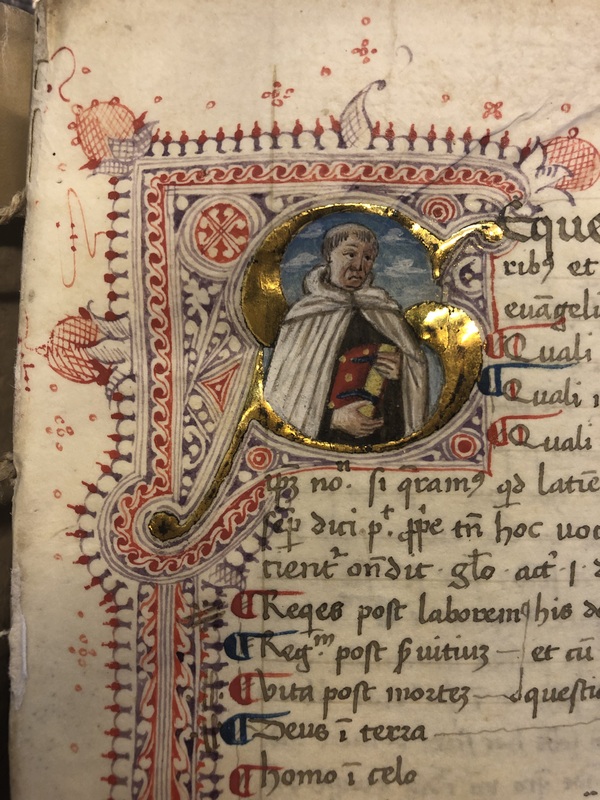 Seque
ribꝰ et
euāgeli
Quali
Quali
Quali
no. si q̄ramꝰ qd latiē
dici hoc uoc
tient ondit glo act 1 d
Reqes post laborem his de
Regᵐ post uitiuz et cū
Vita post mortez questio
Deus ī terra
homo ī celo